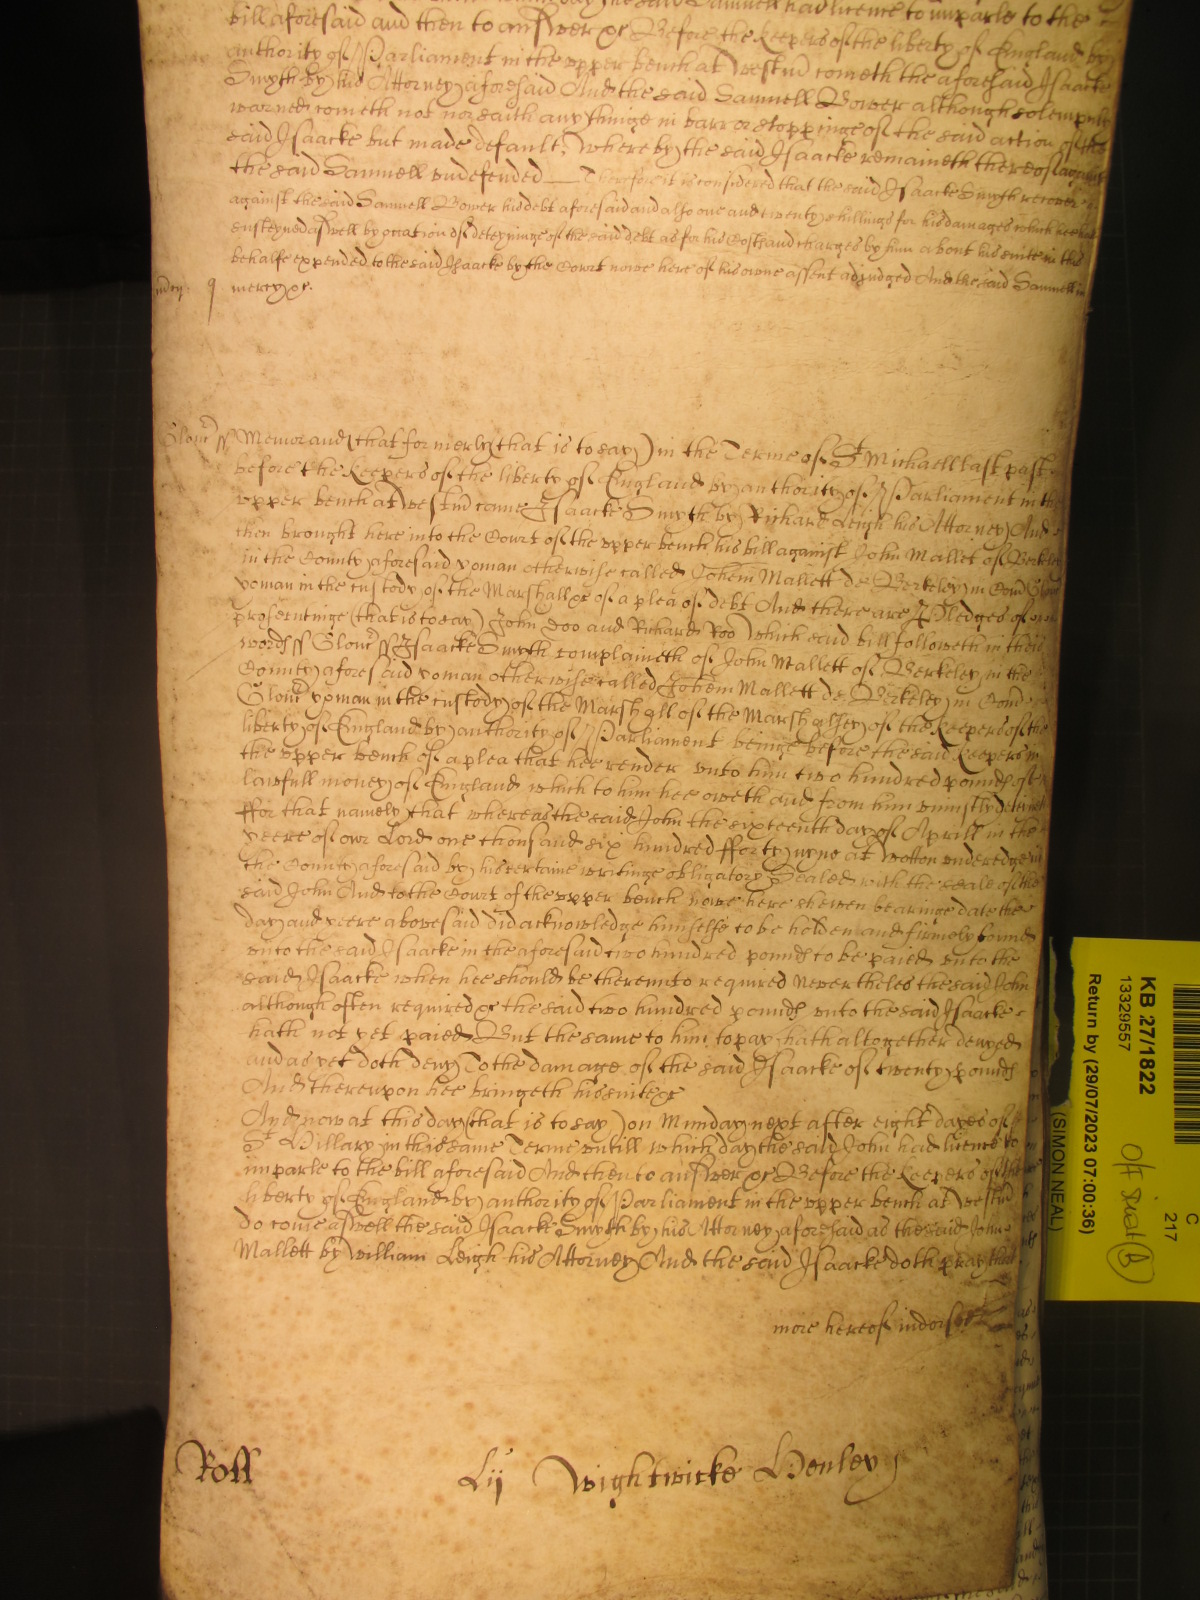 the said Samuell had licence to imparle to the
bill aforesaid and then to answer &c Before the keepers of the liberty of England by
authority of Parliament in the upper bench at Westm cometh the aforesaid Isaacke
Smyth by his Attorney aforesaid And the said Samuell Bower although solempnly
warned cometh not nor saith any thinge in barr or stoppinge of the said action of the
said Isaacke but made default, Whereby the said Isaacke remaineth thereof against
the said Samuell undefended Therefore it is considered that the said Isaacke Smyth recover
against the said Samuell Bower his debt aforesaid and also one and twenty shillings for his damages which hee hath
susteyned aswell by occation of deteyninge of the said debt as for his Costs and charges by him about his suite in this
behalfe expended to the said Isaacke by the Court nowe here of his owne assent adjudged And the said Samuell in
mercy &c.
Glouc ss Memorand that formerly (that is to say) in the Terme of St Michaell last past
before the keepers of the liberty of England by authority of Parliament in the
upper bench at Westm came Isaacke Smyth by Richard Leigh his Attorney And
then brought here into the Court of the upper bench his bill against John Mallet of Berkeley
in the County aforesaid yoman otherwise called Johem Mallett de Berkeley in Com Glouc
yoman in the custody of the Marshall &c of a plea of debt And there are Pledges of
prosecutinge (that is to say) John Doo and Richard Roo Which said bill followeth in theis
words ss Glouc ss Isaacke Smyth complaineth of John Mallett of Berkeley in the
County aforesaid yoman otherwise called Johem Mallett de Berkeley in Com
Glouc yoman in the custody of the Marshall of the Marshalsey of the keepers of the
liberty of England by authority of Parliament beinge before the said keepers in
the upper bench of a plea that hee render unto him two hundred pounds of
lawfull money of England which to him hee oweth and from him uniustly deteineth
ffor that namely that whereas the said John the sixteenth day of Aprill in the
yeere of our Lord one thousand six hundred fforty nyne at Wotton underedge in
the County aforesaid by his certaine writinge obligatory Sealed with the seale of the
said John And to the Court of the upper bench nowe here shewen bearinge date the
day and yeere abovesaid did acknowledge himselfe to be holden and firmely bound
unto the said Isaacke in the aforesaid two hundred pounds to be paied unto the
said Isaacke when hee should be thereunto required Nevertheles the said John
although often required &c the said two hundred pounds unto the said Isaacke
hath not yet paied But the same to him to pay hath altogether denyed
and as yet doth deny To the damage of the said Isaacke of twenty pounds
And thereupon hee bringeth his suite &c
And now at this day (that is to say) on Munday next after eight dayes of
St Hillary in this same Terme untill which day the said John had licence to
imparle to the bill aforesaid And then to answer &c Before the keepers of the
liberty of England by authority of Parliament in the upper bench at Westm
do come aswell the said Isaacke Smyth by his Attorney aforesaid as the said John
Mallett by William Leigh his Attorney And the said Isaacke doth pray that
more hereof indorsed
Roll Lij Wightwicke Henley
KB 27/1822
1332957
Return by (29/07/2023 07:00:36)
(SIMON NEAL)
C
217